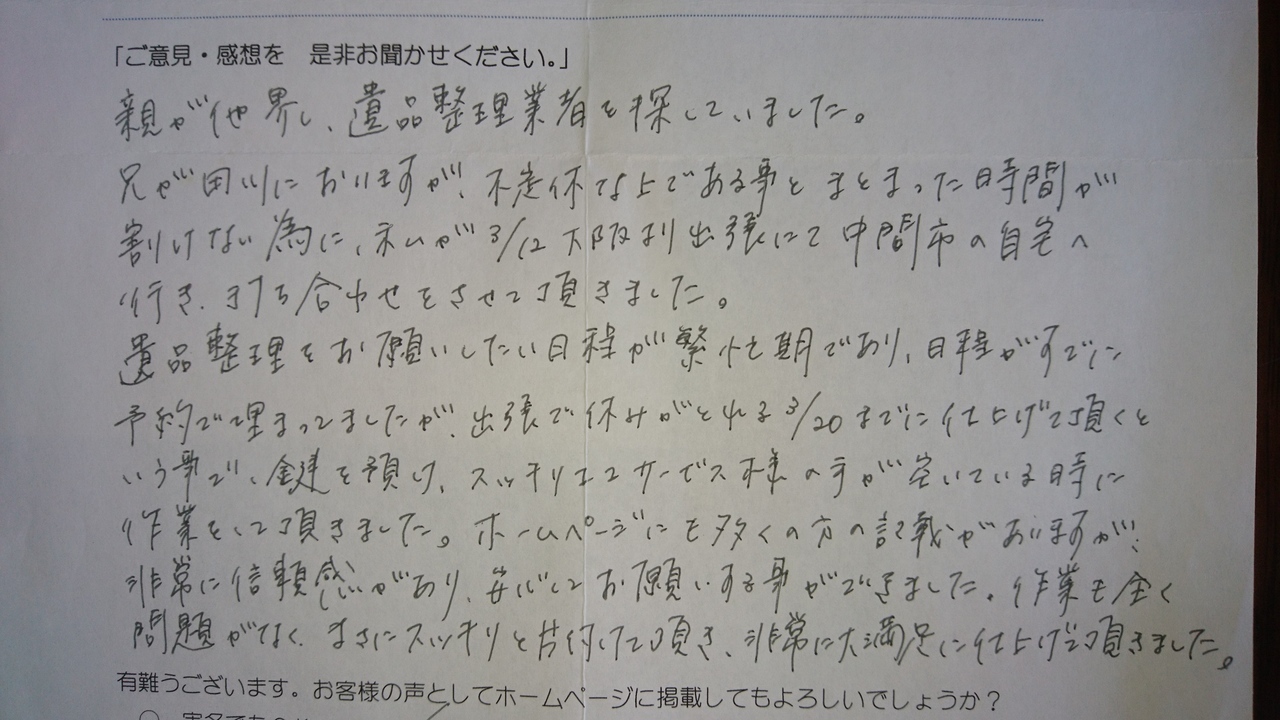 「ご意見・感想を 是非お聞かせください。」
親が他界し、遺品整理業者を探していました。
兄が田川におりますが、不定休な上である事とまとまった時間が
割けない為に、私が3/12大阪より出張にて中間市の自宅へ
行き、打ち合わせをさせて頂きました。
遺品整理をお願いしたい日程が繁忙期であり、日程がすでに
予約で埋まってましたが、出張で休みがとれる3/20までに仕上げて頂くと
いう事で、鍵を預け、スッキリエコサービス様の手が空いている時に
作業をして頂きました。ホームページにも多くの方の記載がありますが、
非常に信頼感があり、安心してお願いする事ができました。作業も全く
問題がなく、まさにスッキリと片付けて頂き、非常に大満足に仕上げて頂きました。
有難うございます。お客様の声としてホームページに掲載してもよろしいでしょうか？